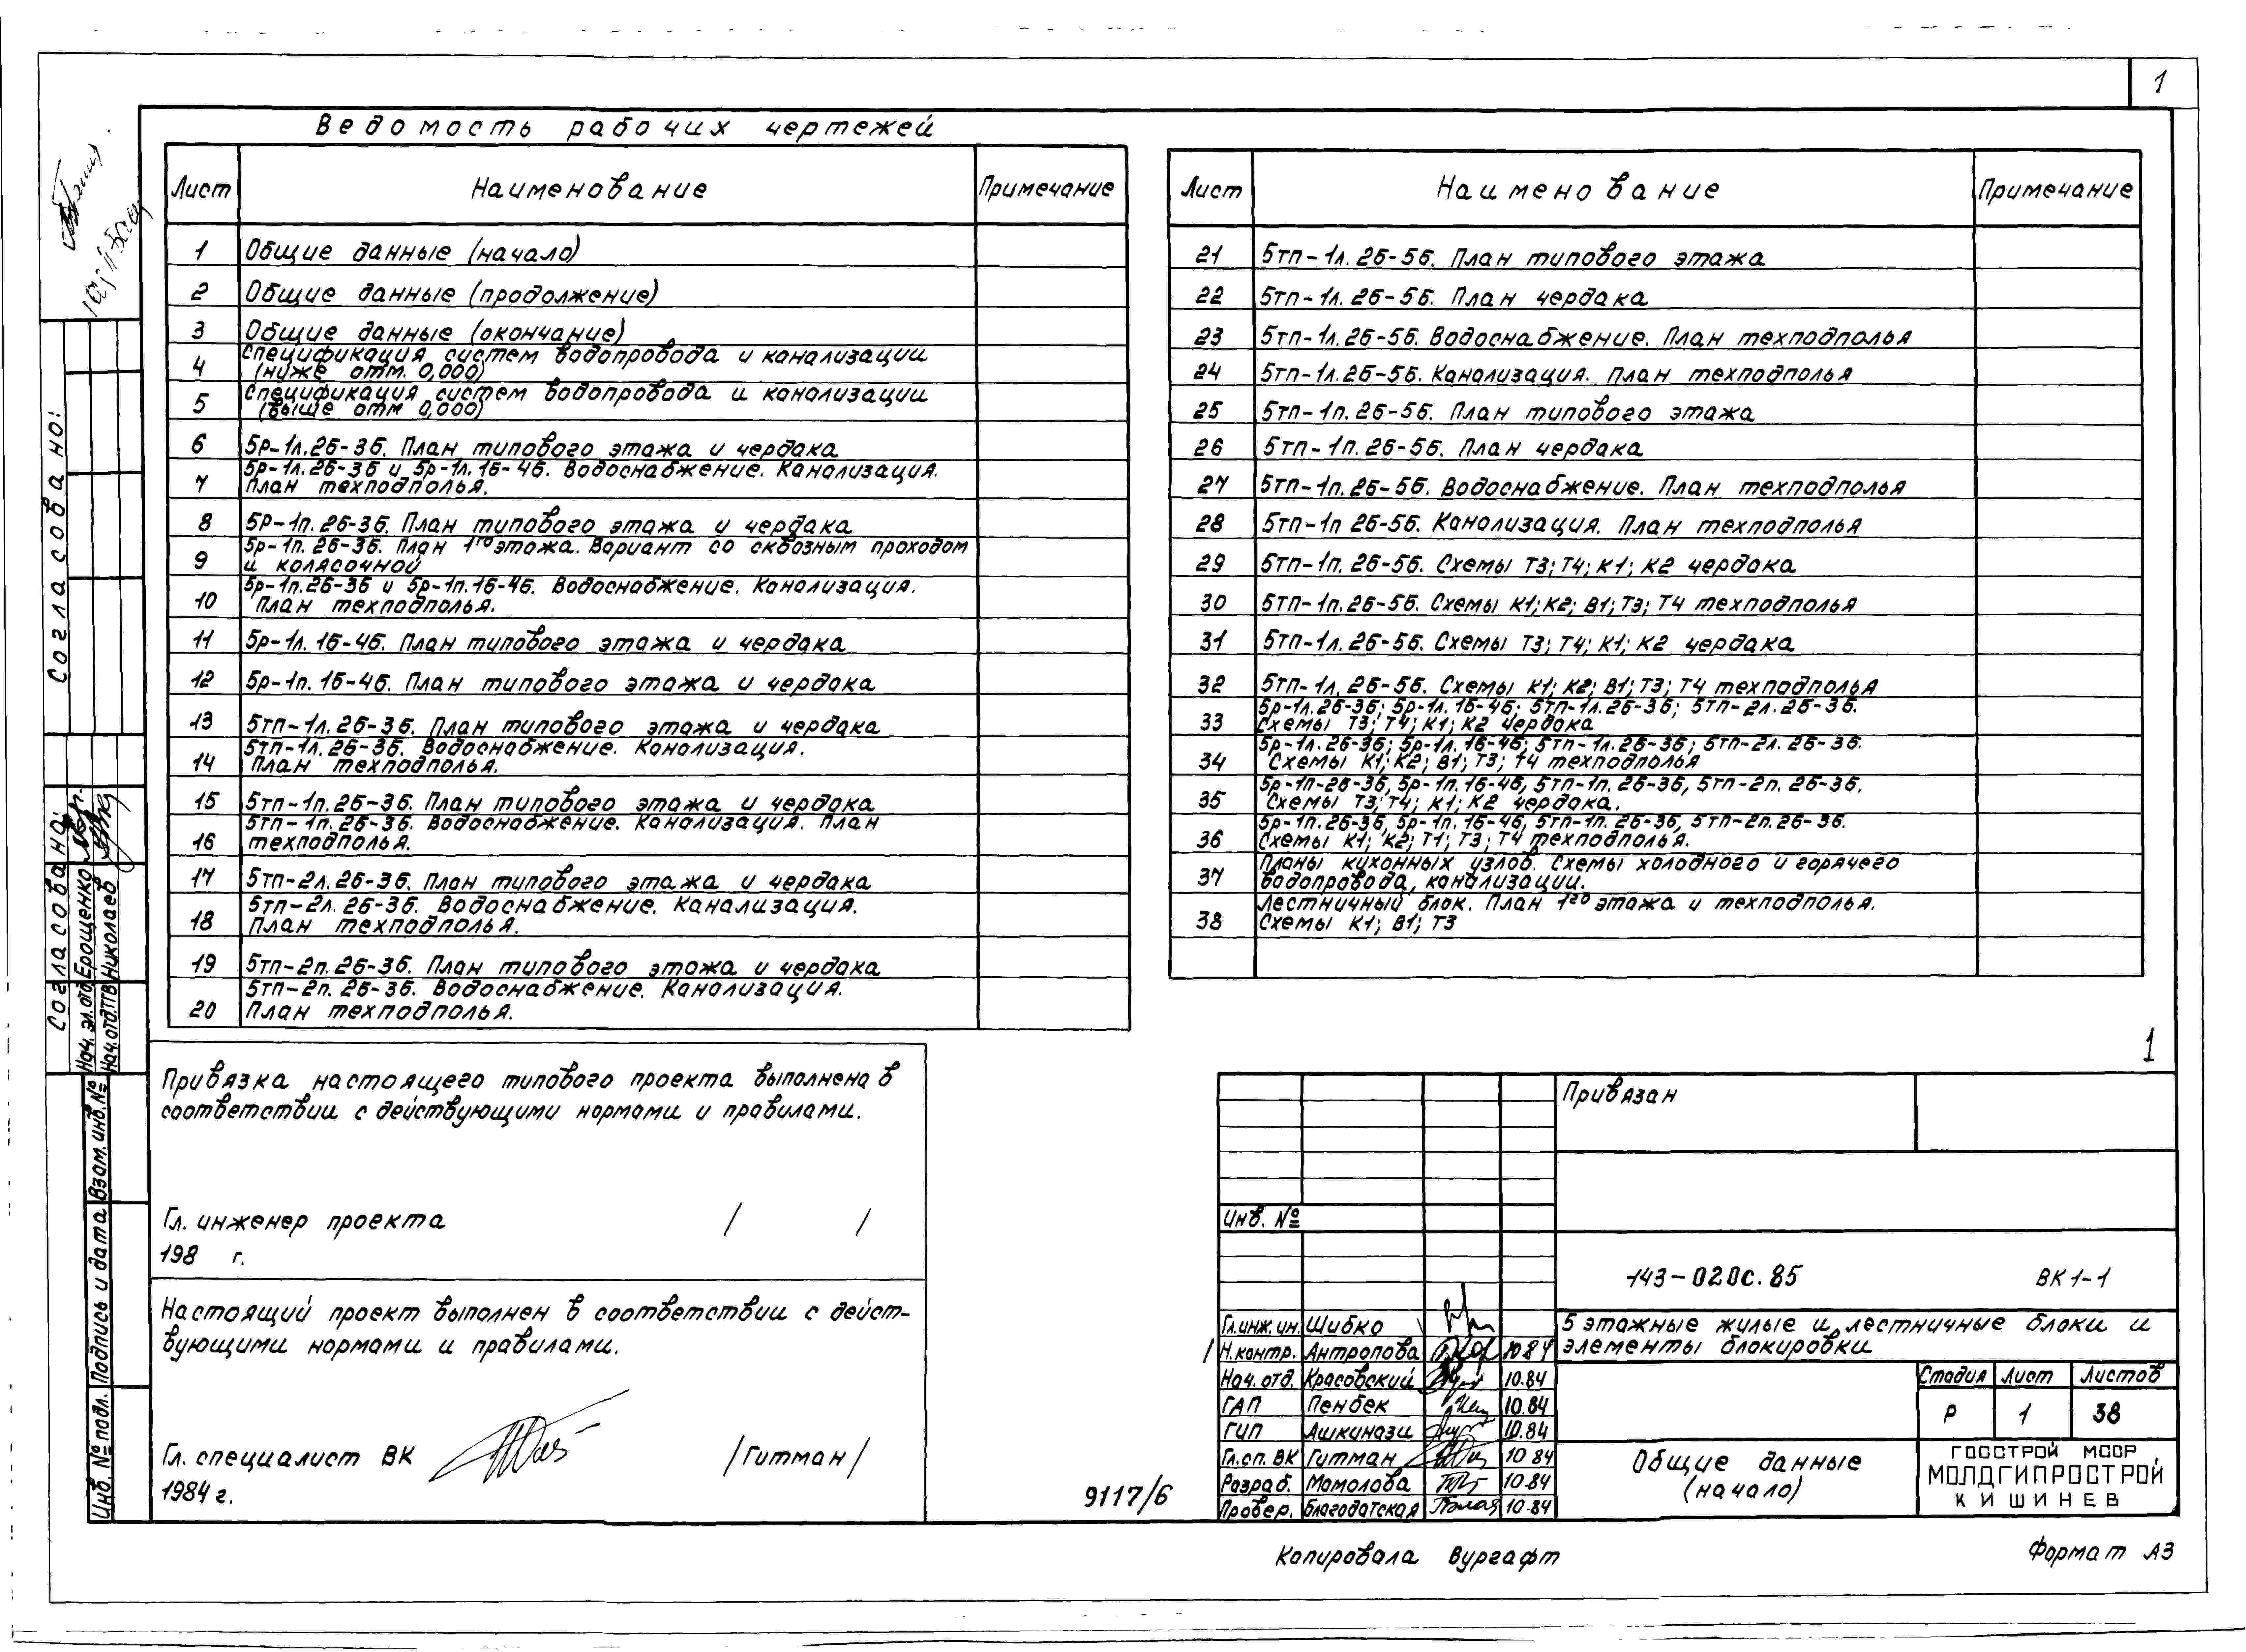 1
Ведомость рабочих чертежей
Лист Наименование Примечание
1 Общие данные (начало)
2 Общие данные (продолжение)
3 Общие данные (окончание)
4 Спецификация систем водопровода и канализации
(ниже отм. 0,000)
5 Спецификация систем водопровода и канализации
(выше отм 0,000)
6 5р-1л.2б-3б. План типового этажа и чердака
7 5р-1л.2б-3б и 5р-1л.1б-4б. Водоснабжение. Канализация.
План техподполья.
8 5р-1п.2б-3б. План типового этажа и чердака
9 5р-1п.2б-3б. План 1го этажа. Вариант со сквозным проходом
и колясочной
10 5р-1п.2б-3б и 5р-1п.1б-4б. Водоснабжение. Канализация.
План техподполья.
11 5р-1л.1б-4б. План типового этажа и чердака
12 5р-1п.1б-4б. План типового этажа и чердака
13 5тп-1л.2б-3б. План типового этажа и чердака
14 5тп-1л.2б-3б. Водоснабжение. Канализация.
План техподполья.
15 5тп-1п.2б-3б. План типового этажа и чердака
16 5тп-1п.2б-3б. Водоснабжение. Канализация. План
техподполья.
17 5тп-2л.2б-3б. План типового этажа и чердака
18 5тп-2л.2б-3б. Водоснабжение. Канализация.
План техподполья.
19 5тп-2п.2б-3б. План типового этажа и чердака
20 5тп-2п.2б-3б. Водоснабжение. Канализация.
План техподполья.
Лист Наименование Примечание
21 5тп-1л.2б-5б. План типового этажа
22 5тп-1л.2б-5б. План чердака
23 5тп-1л.2б-5б. Водоснабжение. План техподполья
24 5тп-1л.2б-5б. Канализация. План техподполья
25 5тп-1п.2б-5б. План типового этажа
26 5тп-1п.2б-5б. План чердака
27 5тп-1п.2б-5б. Водоснабжение. План техподполья
28 5тп-1п 2б-5б. Канализация. План техподполья
29 5тп-1п.2б-5б. Схемы Т3; Т4; К1; К2 чердака
30 5тп-1п.2б-5б. Схемы К1; К2; В1; Т3; Т4 техподполья
31 5тп-1л.2б-5б. Схемы Т3; Т4; К1; К2 чердака
32 5тп-1л.2б-5б. Схемы К1; К2; В1; Т3; Т4 техподполья
33 5р-1л.2б-3б; 5р-1л.1б-4б; 5тп-1л.2б-3б; 5тп-2л.2б-3б.
Схемы Т3; Т4; К1; К2 чердака
34 5р-1л.2б-3б; 5р-1л.1б-4б; 5тп-1л.2б-3б; 5тп-2л.2б-3б.
Схемы К1; К2; В1; Т3; Т4 техподполья
35 5р-1п-2б-3б, 5р-1п.1б-4б, 5тп-1п.2б-3б, 5тп-2п.2б-3б.
Схемы Т3; Т4; К1; К2 чердака.
36 5р-1п.2б-3б, 5р-1п.1б-4б, 5тп-1п.2б-3б, 5тп-2п.2б-3б.
Схемы К1; К2; Т1; Т3; Т4 техподполья.
37 Планы кухонных узлов. Схемы холодного и горячего
водопровода, канализации.
38 Лестничный блок. План 1го этажа и техподполья.
Схемы К1; В1; Т3
Согласовано:
Согласовано:
Нач. эл. отд. Ерощенко
Нач. отд. ТГВ Николаев
Взам. инв. №
Подпись и дата
Инв. № подл.
Привязка настоящего типового проекта выполнена в
соответствии с действующими нормами и правилами.
Гл. инженер проекта / /
198 г.
Настоящий проект выполнен в соответствии с дейст-
вующими нормами и правилами.
Гл. специалист ВК /Гитман/
1984 г.
9117/6
1
Привязан
Инв. №
143-020с.85 ВК 1-1
Гл. инж. ин. Шибко
Н. контр. Антропова 10 84
Нач. отд. Красовский 10.84
ГАП Пенбек 10.84
ГИП Ашкинази 10.84
Гл. сп. ВК Гитман 10 84
Разраб. Мамолова 10.84
Провер. Благодатская 10.84
5 этажные жилые и лестничные блоки и
элементы блокировки
Стадия Лист Листов
Р 1 38
Общие данные
(начало)
ГОССТРОЙ МССР
МОЛДГИПРОСТРОЙ
КИШИНЕВ
Копировала Вургафт
Формат А3